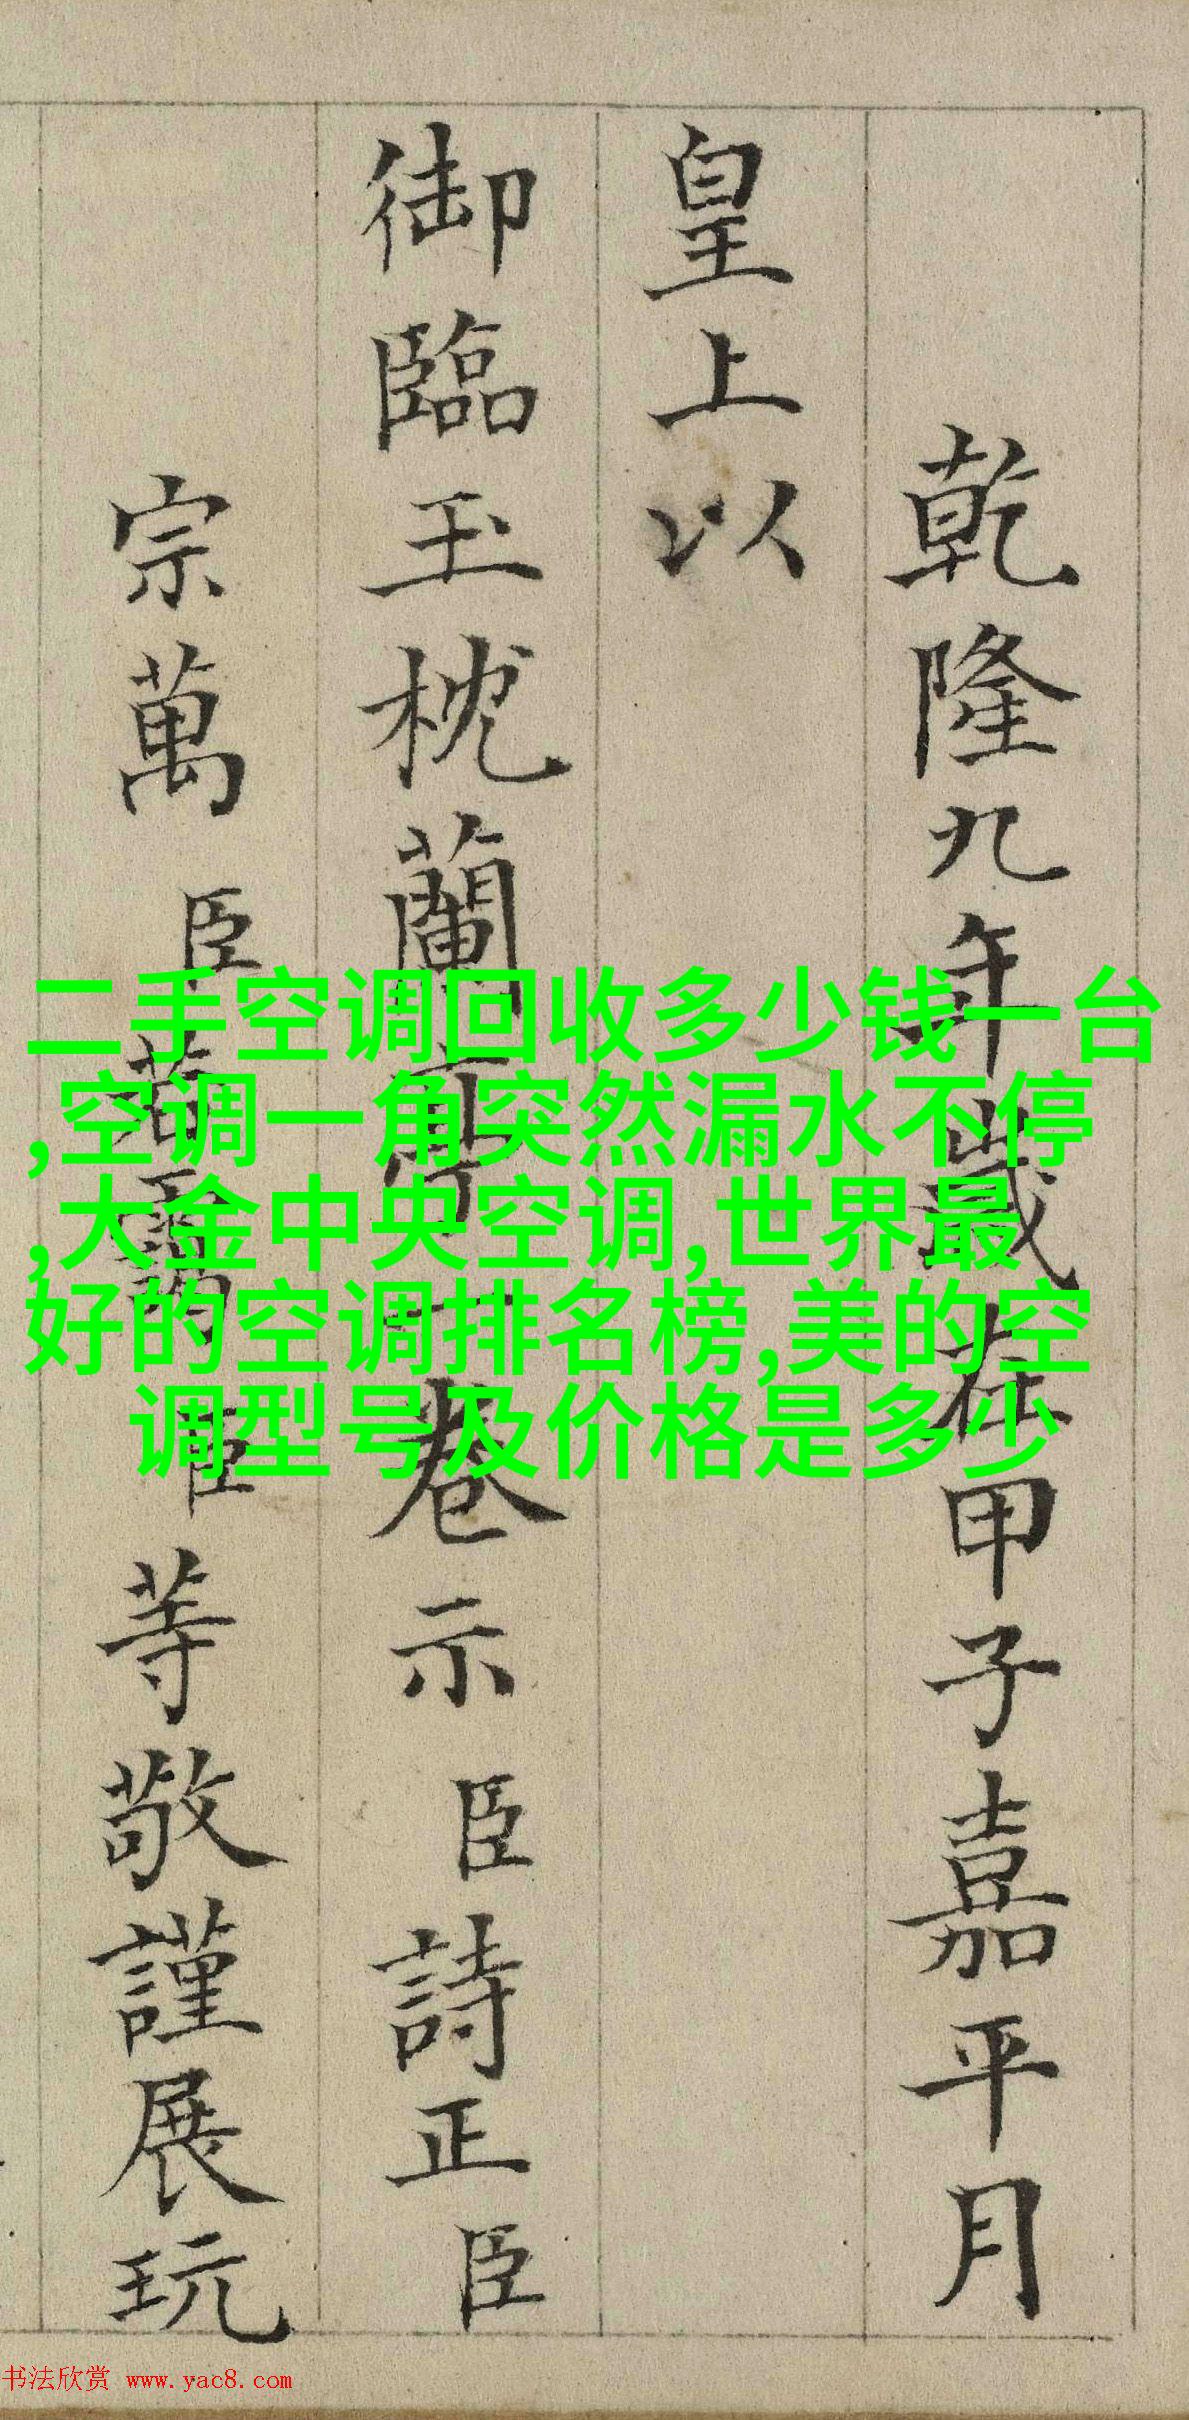 乾隆九年歲在甲子嘉平月
皇上以
御臨玉枕蘭亭一卷示臣詩正臣
宗萬臣若靄臣等敬謹展玩
二手空调回收多少钱一台
,空调一角突然漏水不停
,大金中央空调,世界最
好的空调排名榜,美的空
调型号及价格是多少
书法欣赏 www.yac8.com